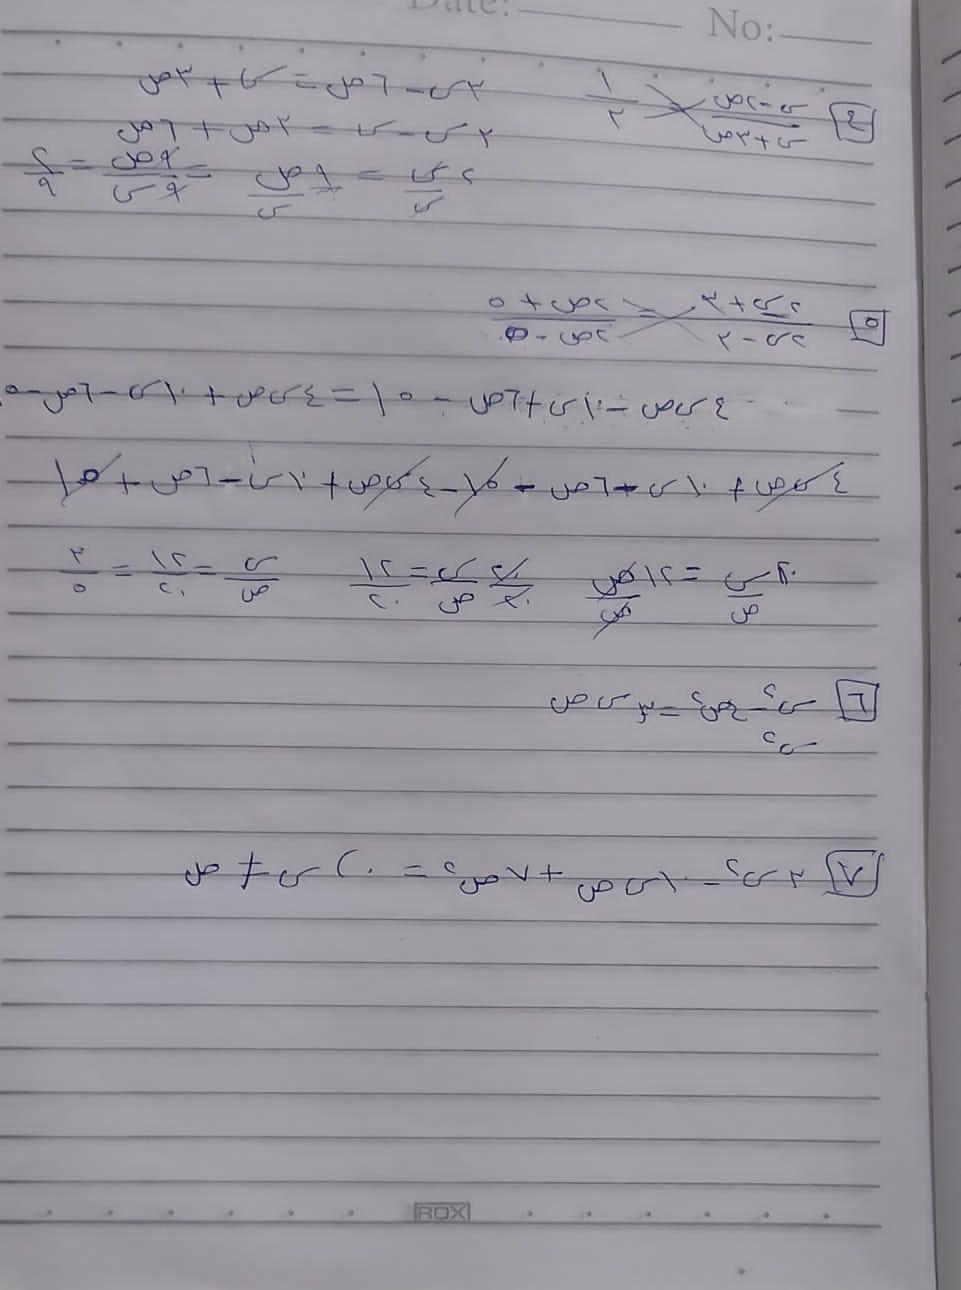 Date: No:
[٤] س-٢ص / س+٣ص = ١/٣ ٣س-٦ص=س+٣ص
٣س-س=٣ص+٦ص
٢س/س = ٩ص/س = ٩ص/٩س = ٢/٩
[٥] ٢س+٣ / ٢س-٣ = ٢ص+٥ / ٢ص-٥
٤س ص-١٠س+٦ص-١٥=٤س ص+١٠س-٦ص-١٥
٤س ص+١٠س+٦ص-١٥-٤س ص+١٠س-٦ص+١٥
٢٠س/ص=١٢ص/ص ٢٠/٢٠ س/ص=١٢/٢٠ س/ص=١٢/٢٠=٣/٥
[٦] س²-٤ص²=٣س ص
س²
[٧] ٣س²-١٠س ص+٧ص²=٠) س≠ص
ROX